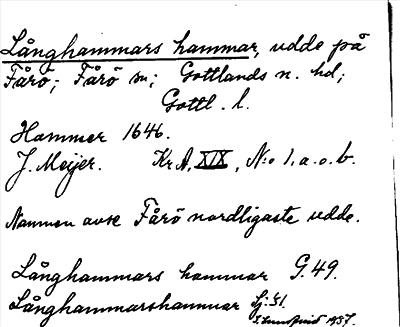 Långhammars hammar, udde på
Fårö; Fårö sn; Gottlands n. hd;
Gottl. l.
Hammer 1646.
J. Meijer. KrA, XIX, N:o 1, a.o.b.
Namnen avse Fårö nordligaste udde.
Långhammars hammar G.49.
Långhammarshammar Sj: 51.
1937.